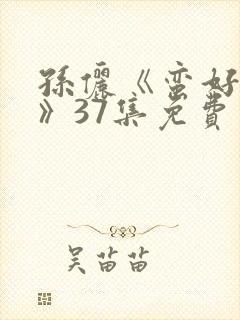 孫儷《蛮好
》37集免費
吴苗苗